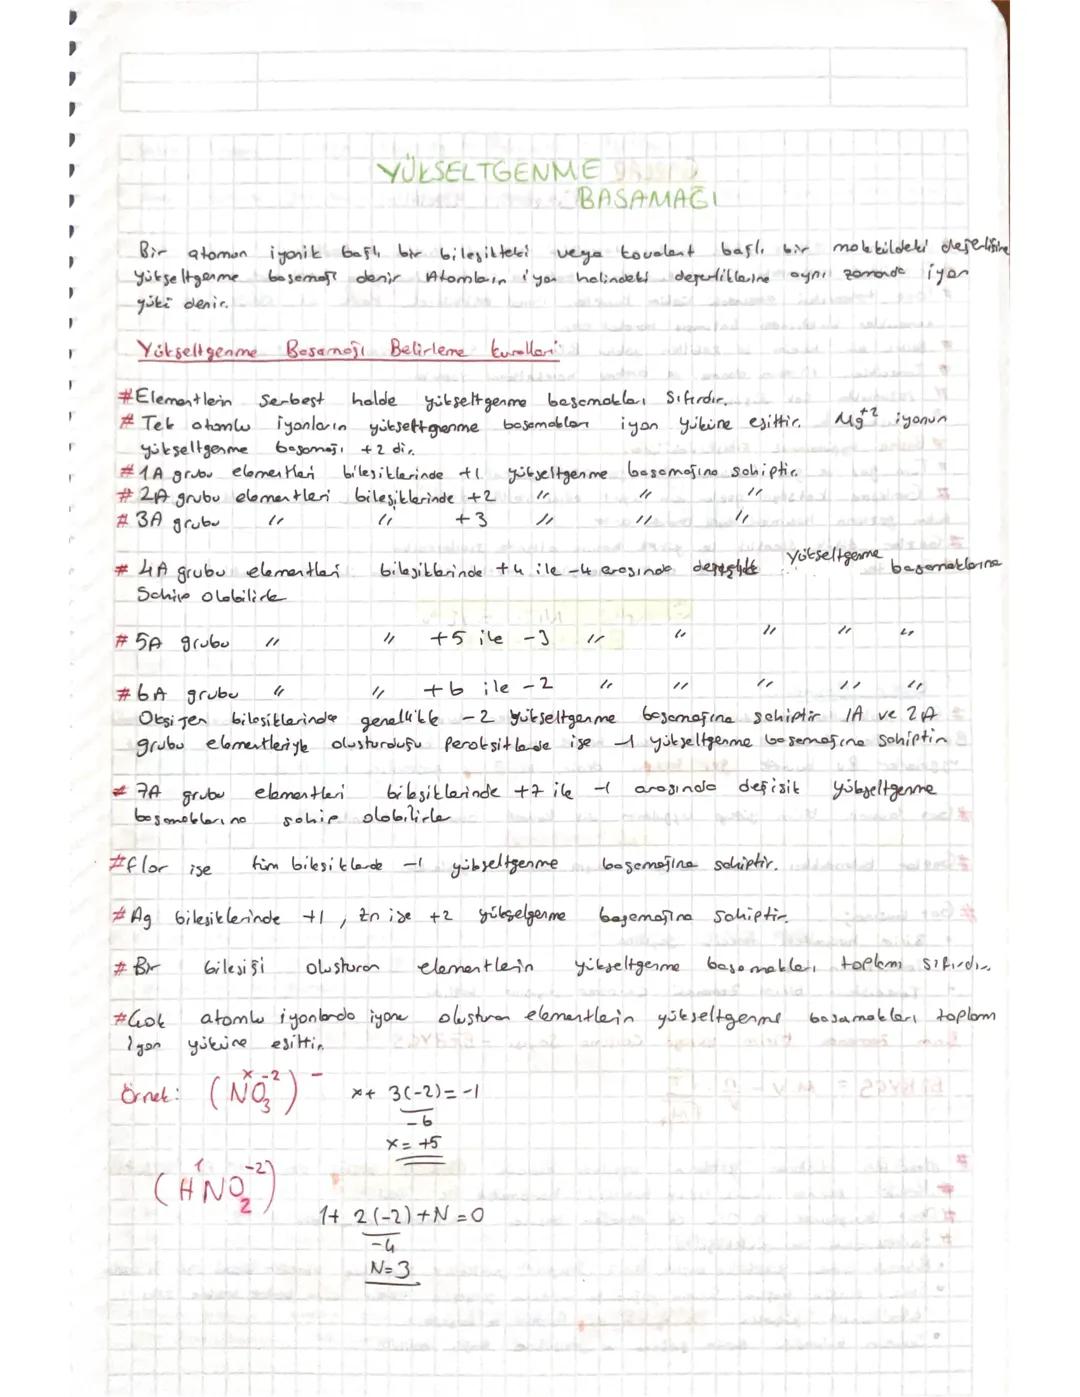 YÜKSELTGENME
BASAMAĞI
Bir atomun iyonik bağlı bir bileşikteki veya kovalent bağlı bir moleküldeki değerliğine
yükseltgenme basamağı denir Atomların iyon halindeki değerliklerine aynı zamanda iyon
yükü denir.
Yükseltgenme Basamağı Belirleme kuralları
#Elementlerin serbest halde yükseltgenme basamakları sıfırdır.
# Tek atomlu iyonların yükseltgenme basamakları iyon yüküne eşittir. Mg+2 iyonun
yükseltgenme basamağı +2 dir.
# 1A grubu elementleri bileşiklerinde +1 yükseltgenme basamağına sahiptir.
# 2A grubu elementleri bileşiklerinde +2 " " "
# 3A grubu " " +3 " " "
# 4A grubu elementleri bileşiklerinde +4 ile -4 arasında değişik yükseltgenme basamaklarına
Sahip olabilirler
# 5A grubu " " +5 ile -3 " " " " "
# 6A grubu " " +6 ile -2 " " " " "
Oksijen bileşiklerinde genellikle -2 yükseltgenme basamağına sahiptir 1A ve 2A
grubu elementleriyle oluşturduğu peroksitlerde ise -1 yükseltgenme basamağına sahiptir
# 7A grubu elementleri bileşiklerinde +7 ile -1 arasında değişik yükseltgenme
basamaklarına sahip olabilirler
#flor ise tüm bileşiklerde -1 yükseltgenme basamağına sahiptir.
# Ag bileşiklerinde +1, Zn ise +2 yükselgenme basamağına sahiptir.
# Bir bileşiği oluşturan elementlerin yükseltgenme basamakları toplamı sıfırdır.
#Çok atomlu iyonlarda iyonu oluşturan elementlerin yükseltgenme basamakları toplamı
İyon yüküne eşittir.
Örnek: (NO3)- x -2 x+ 3(-2)= -1
-6
x= +5
(HNO2) 1 -2
1+ 2(-2)+N=0
-4
N=3